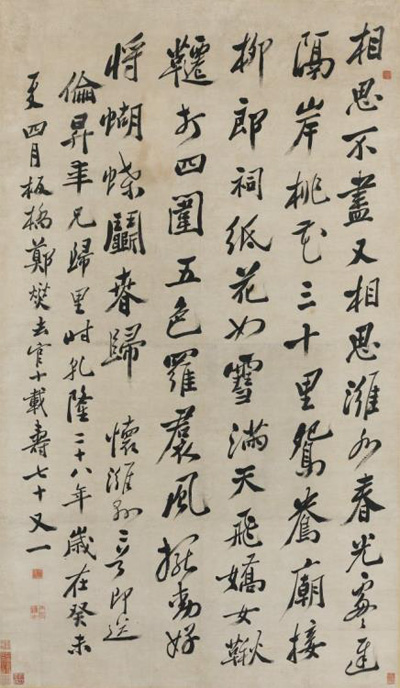 相思不盡又相思濰水春光處處遲
隔岸桃花三十里鴛鴦廟接
柳郎祠紙花如雪滿天飛嬌女鞦
韆打四圍五色羅裠風擺動好
將蝴蝶鬭春歸 懷濰縣二首即送
倫昇年兄歸里時乾隆二十八年歲在癸未
夏四月板橋鄭燮去官十載壽七十又一